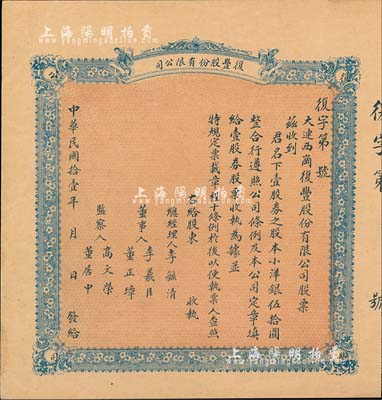 上海陽明拍賣
復豐股份有限公司
復
公
復字第 號
大連西崗復豐股份有限公司股票
茲收到
君名下壹股券之股本小洋銀伍拾圓
整合行遵照公司條例及本公司定章填
給壹股券股票收執為據並
特規定票載章程十條例於後以便執票人查照
右給股東 收執
總經理人 李毓清
董事人 李義臣
董正璋
監察人 高文榮
董居中
中華民國拾壹年 月 日 發給
復字第
號
上海陽明拍賣
上海陽明拍賣